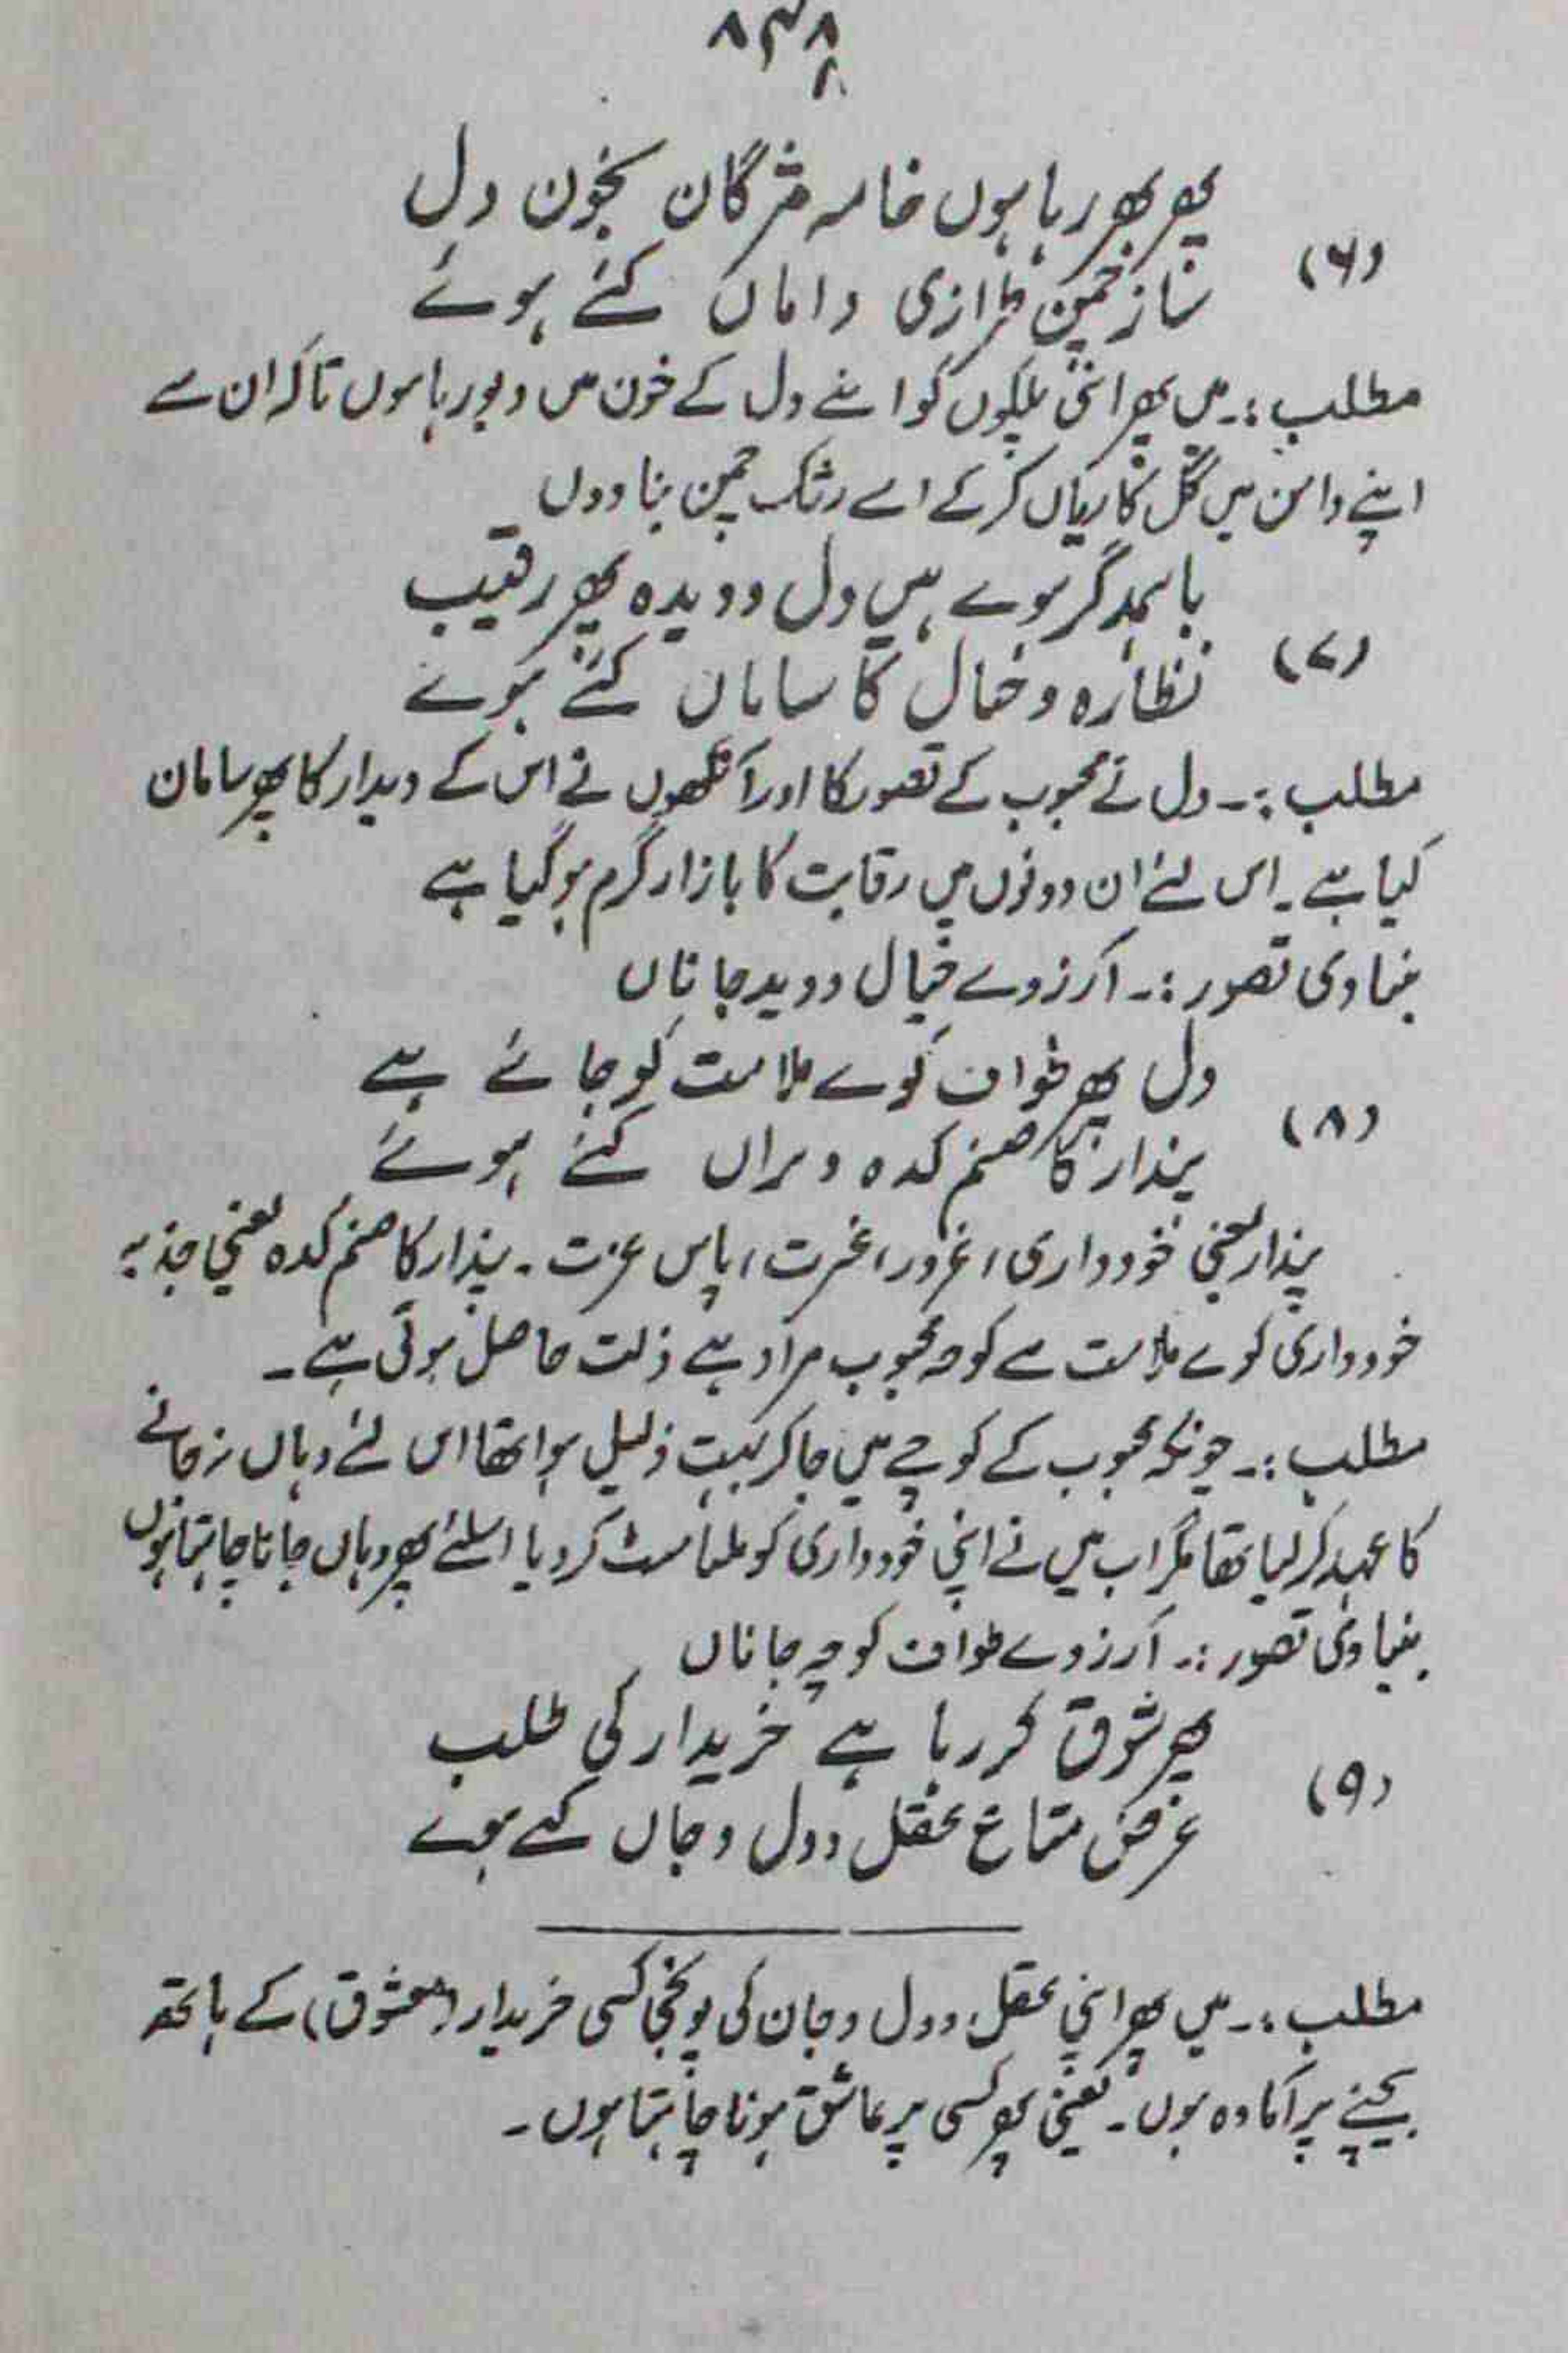 ۸۳۸
پھر بھر رہا ہوں خامہ مژگاں بخون دل
(۶)
ساز چمن طرازی داماں کئے ہوئے
مطلب :۔ میں پھر اپنی پلکوں کو اپنے دل کے خون میں ڈبو رہا ہوں تاکہ ان سے
اپنے دامن میں گل کاریاں کر کے اسے رشک چمن بنا دوں
باہمدگر ہوے ہیں دل و دیدہ پھر رقیب
(۷)
نظارہ و خیال کا ساماں کئے ہوے
مطلب :۔ دل نے محبوب کے تصور کا اور آنکھوں نے اس کے دیدار کا پھر سامان
کیا ہے۔ اس لئے ان دونوں میں رقابت کا بازار گرم ہو گیا ہے
بنیادی تصور :۔ آرزوے خیال و دید جاناں
دل پھر طواف کوے ملامت کو جائے ہے
(۸)
پندار کا صنم کدہ ویراں کئے ہوئے
پندار یعنی خودداری، غرور، غیرت، پاس عزت۔ پندار کا صنم کدہ یعنی جذبہ
خودداری کوے ملامت سے کوچہ محبوب مراد ہے ذلت حاصل ہوتی ہے۔
مطلب :۔ چونکہ محبوب کے کوچے میں جا کر بہت ذلیل ہوا تھا اس لئے وہاں نہ جانے
کا عہد کر لیا تھا مگر اب میں نے اپنی خودداری کو ملیامیٹ کر دیا اسلئے پھر وہاں جانا چاہتا ہوں
بنیادی تصور :۔ آرزوے طواف کوچہ جاناں
پھر شوق کر رہا ہے خریدار کی طلب
(۹)
عرض متاع عقل و دل و جاں کئے ہوے
مطلب :۔ میں پھر اپنی عقل و دل و جان کی پونجی کسی خریدار (معشوق) کے ہاتھ
بیچنے پر آمادہ ہوں۔ یعنی پھر کسی پر عاشق ہونا چاہتا ہوں۔